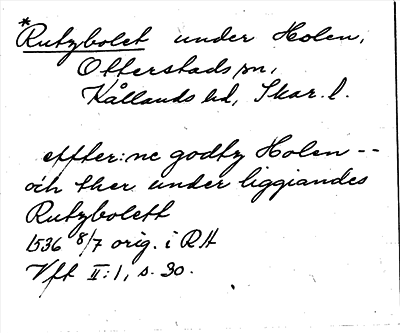 *Rutzbolet under Holen,
Otterstads sn,
Kållands hd, Skar. l.
effter:ne godtz Holen --
och ther under liggiandes
Rutzbolett
1536 8/7 orig. i RA
Vft II:1, s. 30.